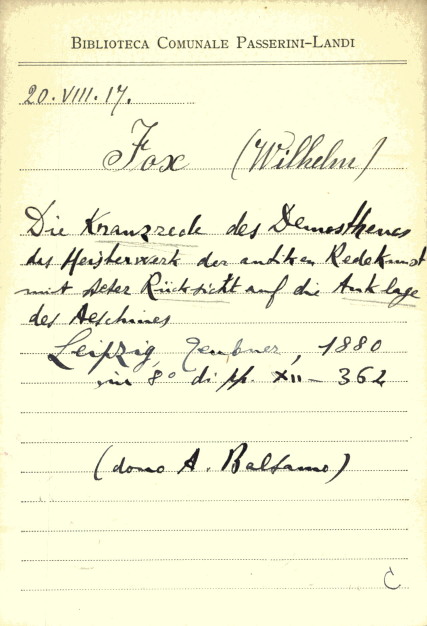 BIBLIOTECA COMUNALE PASSERINI-LANDI
20.VIII.17.
Fox (Wilhelm)
Die Kranzrede des Demosthenes
das Meisterwerk der antiken Redekunst
mit steter Rücksicht auf die Anklage
des Aeschines
Leipzig, Teubner, 1880
in 8° di pp. XII - 362
(dono A. Balsamo)
C